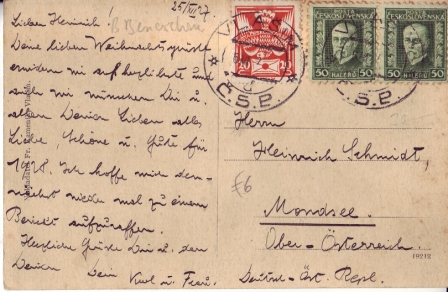 25/XII 27
Lieber Heinrich!
Deine lieben Weihnachtsgrüße
erwidern wir auf herzlichste und
auch wir wünschen Dir u.
allen Deinen Lieben alles
Liebe, Schöne u. Gute für
1928. Ich hoffe mich dem-
nächst wieder mal zu einem
Bericht aufzuraffen.
Herzliche Grüße Dir u. den
Deinen Dein Karl u. Frau.
Č.S.P.
20 20
ČESKOSLOVENSKO
50 HALÉŘŮ 50
ČESKOSLOVENSKO
50 HALÉŘŮ 50
Herrn
Heinrich Schmidt,
£6
Mondsee.
Ober-Österreich.
Deutsch-Öst. Repl.
19212